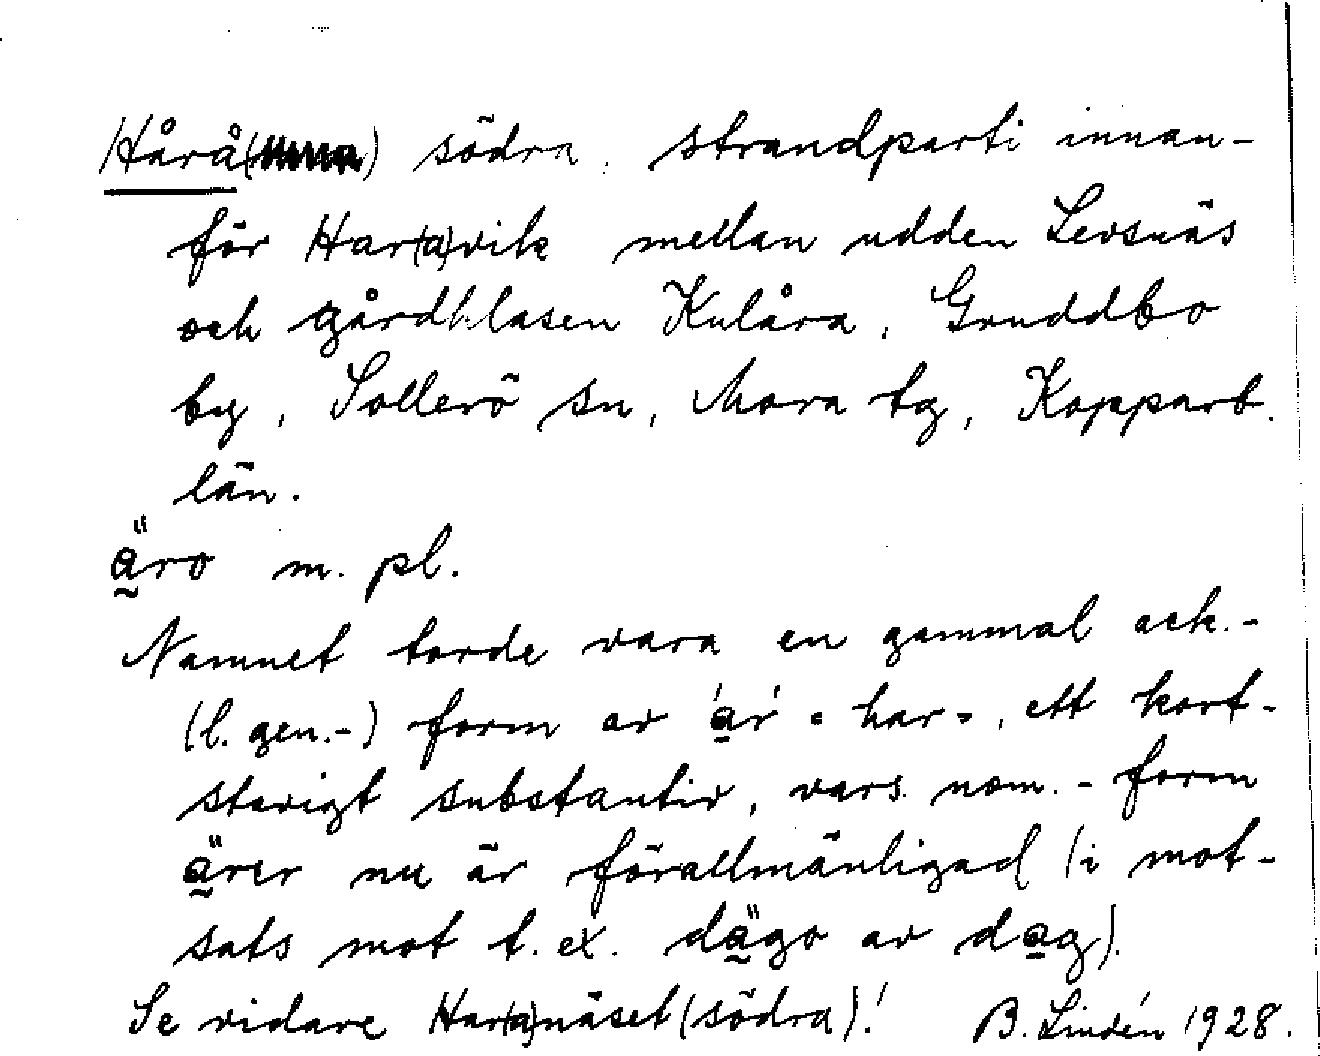 Hårå( ) södra, strandparti innan-
för Har(a)vik mellan udden Levsnäs
och gårdklasen Kulåra, Gruddbo
by, Sollerö sn, Mora tg, Kopparb.
län.
äro m. pl.
Namnet torde vara en gammal ack.-
(l. gen.-) form av ar "har", ett kort-
stavigt substantiv, vars nom.-form
ärer nu är förallmänligad (i mot-
sats mot t. ex. dägo av dag).
Se vidare Har(a)näset (södra)! B. Lindén 1928.